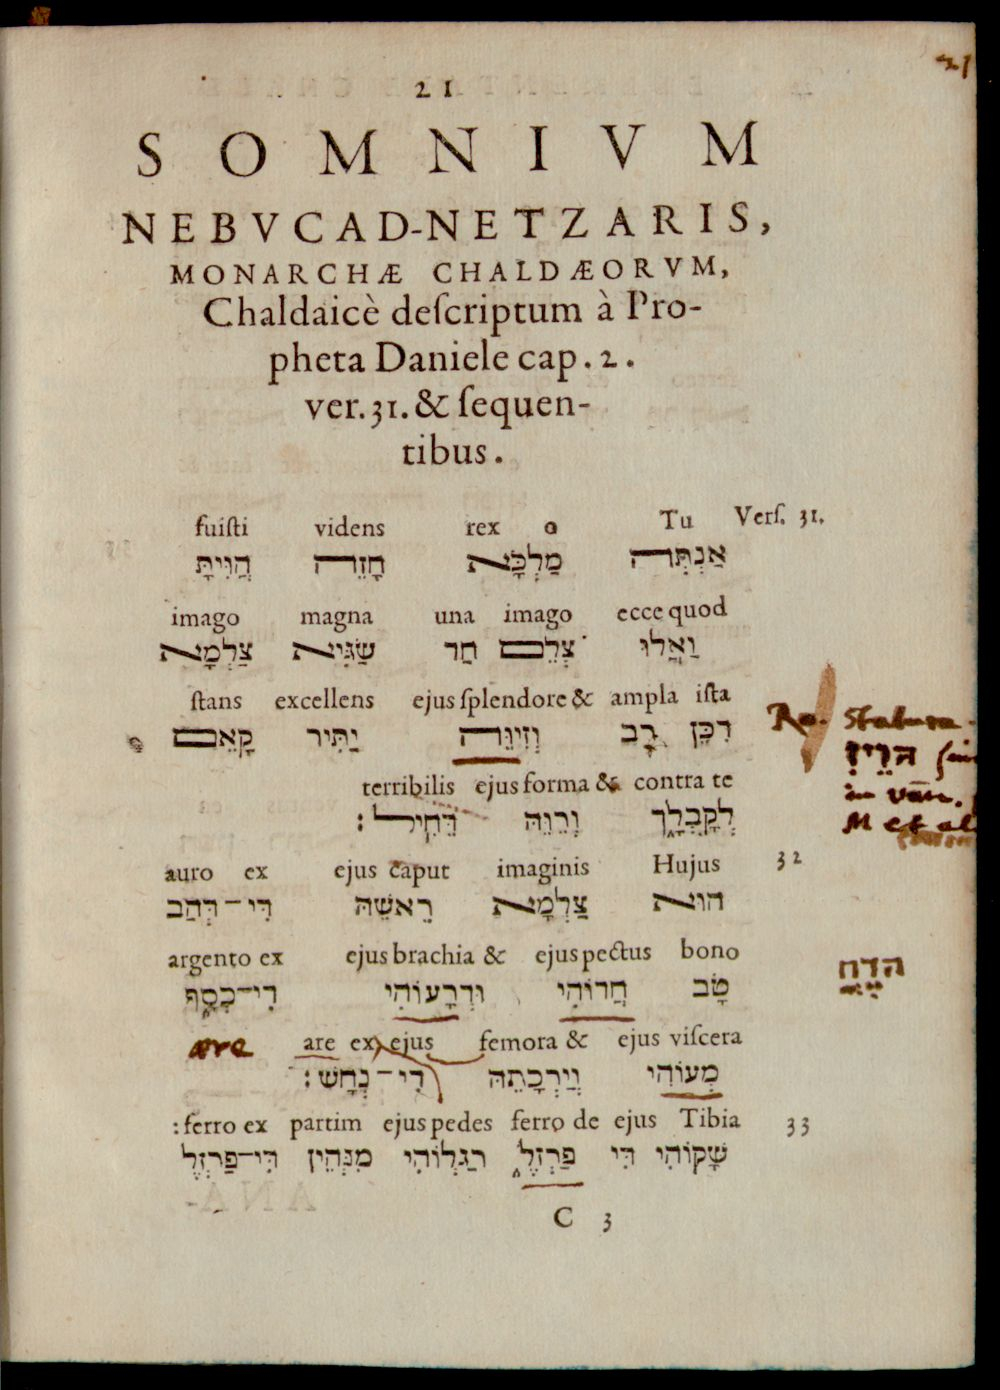 21
21
SOMNIVM
NEBVCAD-NETZARIS,
MONARCHÆ CHALDÆORVM,
Chaldaicè deſcriptum à Pro-
pheta Daniele cap. 2.
ver. 31. & ſequen-
tibus.
fuiſti videns rex o Tu Verſ. 31.
אַנְתְּה מַלְכָּא חָזֵה הֲוַיְתָּ
imago magna una imago ecce quod
וַאֲלוּ צְלֵם חַד שַׂגִּיא צַלְמָא
ſtans excellens ejus ſplendore & ampla iſta
דִּכֵּן רַב וְזִיוֵהּ יַתִּיר קָאֵם
Ro. Statura
terribilis ejus forma & contra te
לְקָבְלָךְ וְרֵוֵהּ דְּחִיל׃
auro ex ejus caput imaginis Hujus 32
הוּא צַלְמָא רֵאשֵׁהּ דִּי־דְּהַב
argento ex ejus brachia & ejus pectus bono
טָב חֲדוֹהִי וּדְרָעוֹהִי דִּי־כְסַף
ære
are ex ejus femora & ejus viſcera
מְעוֹהִי וְיַרְכָתֵהּ דִּי־נְחָשׁ׃
:ferro ex partim ejus pedes ferro de ejus Tibia 33
שָׁקוֹהִי דִּי פַרְזֶל רַגְלוֹהִי מִנְּהֵין דִּי־פַרְזֶל
C 3